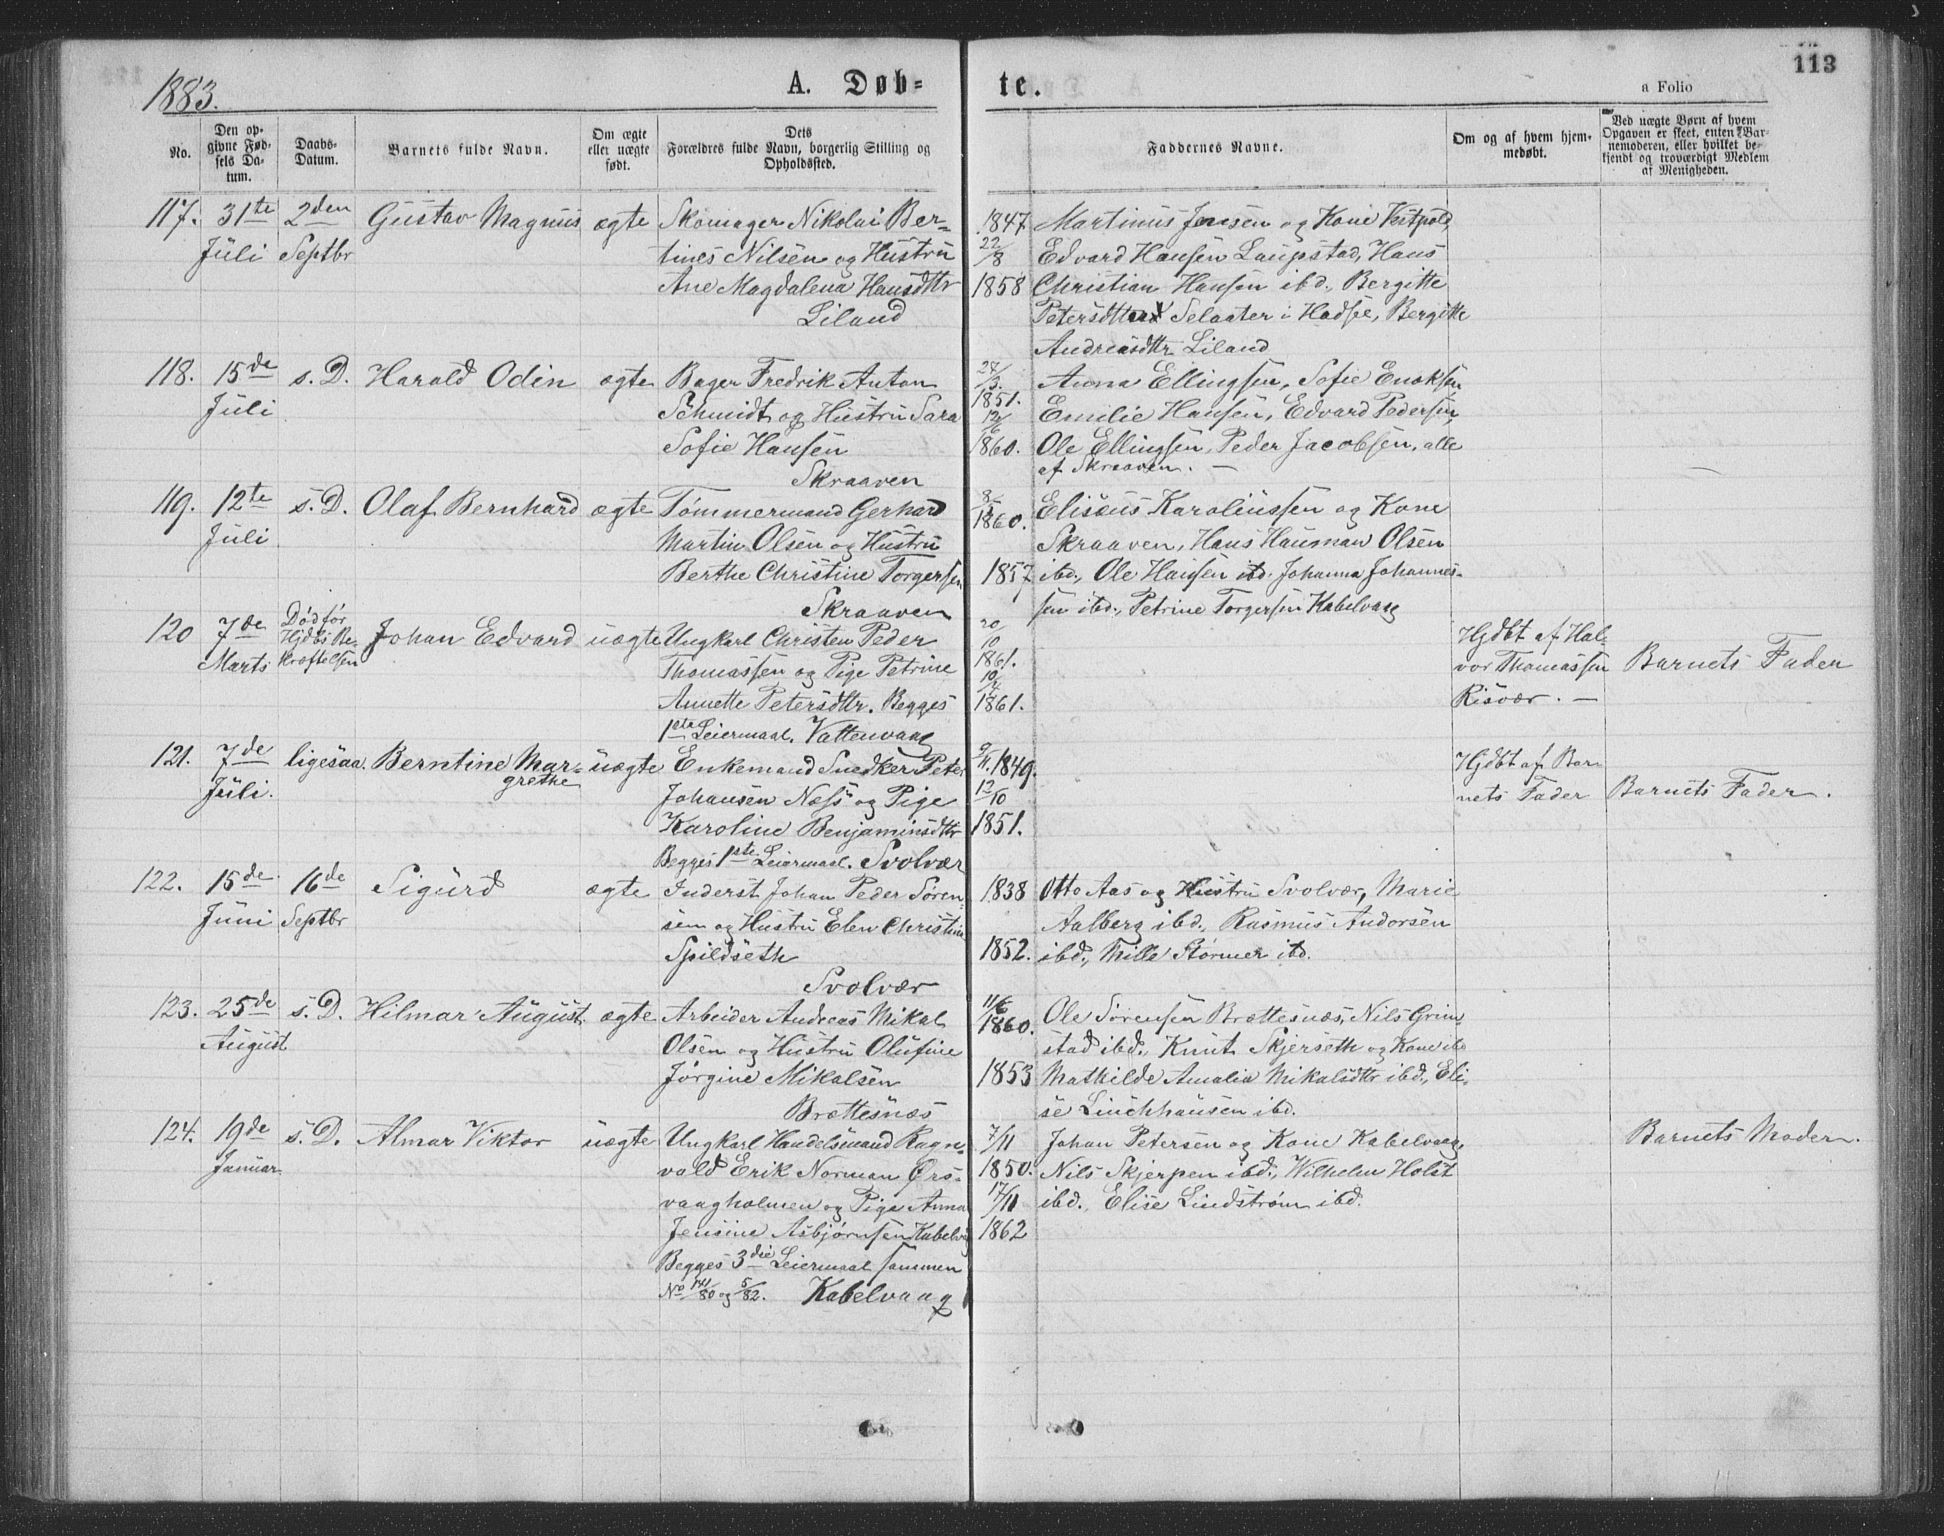 1883.
A. Døb=
te.
113
a Folio
No.
Den op-
givne Fød-
sels Da-
tum.
Daabs-
Datum.
Barnets fulde Navn.
Om ægte
eller uægte
født.
Dets
Forældres fulde Navn, borgerlig Stilling og
Opholdssted.
Faddernes Navne.
Om og af hvem hjem-
medøbt.
Ved uægte Børn af hvem
Opgaven er skeet, enten Bar-
nemoderen, eller hvilket be-
kjendt og troværdigt Medlem
af Menigheden.
117. 31te 2den Gustav Magnus ægte Skomager Nikolai Ber-
Juli Septbr tines Nilsen og Hustru
Ane Magdalena Hansdttr
Liland
1847 Martinus Jensen og Kone
22/8 Edvard Hansen Laupstad, Hans
1858 Christian Hansen ibd., Bergitte
Petersdtter Selaater i Hadsel, Bergitte
Andreasdttr Liland
118. 15de s. D. Harald Odin ægte Bager Fredrik Anton
Juli Schmidt og Hustru Sara
Sofie Hansen
Skraaven
Anna Ellingsen, Sofie Enoksen
1851. Emilie Hansen, Edvard Pedersen,
1860. Ole Ellingsen, Peder Jacobsen, alle
af Skraaven. —
119. 12te s. D. Olaf Bernhard ægte Tømmermand Gerhard
Juli Martin Olsen og Hustru
Berthe Christine Torgersen
Skraaven
1860. Eliseus Karoliussen og Kone
Skraaven, Hans Hauman Olsen
1857 ibd., Ole Hansen ibd. Johanna Johannes-
sen ibd., Petrine Torgersen Kabelvaag
120 7de Død før Johan Edvard uægte Ungkarl Christen Peder
Marts Hjdbs Be-
kræftelsen Thomassen og Pige Petrine
Annette Petersdttr. Begges
1ste Leiermaal. Vattenvaag
20/10
1861.
19/4
1861.
Hjdbt af Hal-
vor Thomassen
Risvær. —
Barnets Fader
121. 7de ligesaa. Berntine Mar-
grethe uægte Enkemand Snedker Peter
Juli. Johansen Næss og Pige
Karoline Benjaminsdttr
Begges 1ste Leiermaal. Svolvær
9/11 1849.
12/10
1851.
Hjdbt af Bar-
nets Fader
Barnets Fader.
122. 15de 16de Sigurd ægte Inderst Johan Peder Søren-
Juni Septbr sen og Hustru Elen Christine
Spildseth
Svolvær
1838 Otto Aas og Hustru Svolvær, Marie
Aalberg ibd., Rasmus Andorsen
1852. ibd., Mille Størmer ibd.
123. 25de s. D. Hilmar August ægte Arbeider Andreas Mikal
August Olsen og Hustru Olufine
Jørgine Mikalsen
Brættesnæs
11/6 Ole Sørensen Brættesnæs, Nils Grim-
1860. stad ibd., Knut Skjerseth og Kone ibd
1853 Mathilde Amalia Mikalsdttr ibd., Eli-
se Linchhausen ibd.
124. 19de s. D. Almar Viktor uægte Ungkarl Handelsmand Ragn-
Januar vald Erik Norman Ørs-
vaagholmen og Pige Anna
Jensine Asbjørnsen Kabelvg
Begges 3die Leiermaal sammen
No 141/80 og 5/82. Kabelvaag
7/11 Johan Petersen og Kone Kabelvaag,
1850. Nils Skjerpen ibd., Wilhelm Holst
17/11 ibd., Elise Lindstrøm ibd.
1862
Barnets Moder.